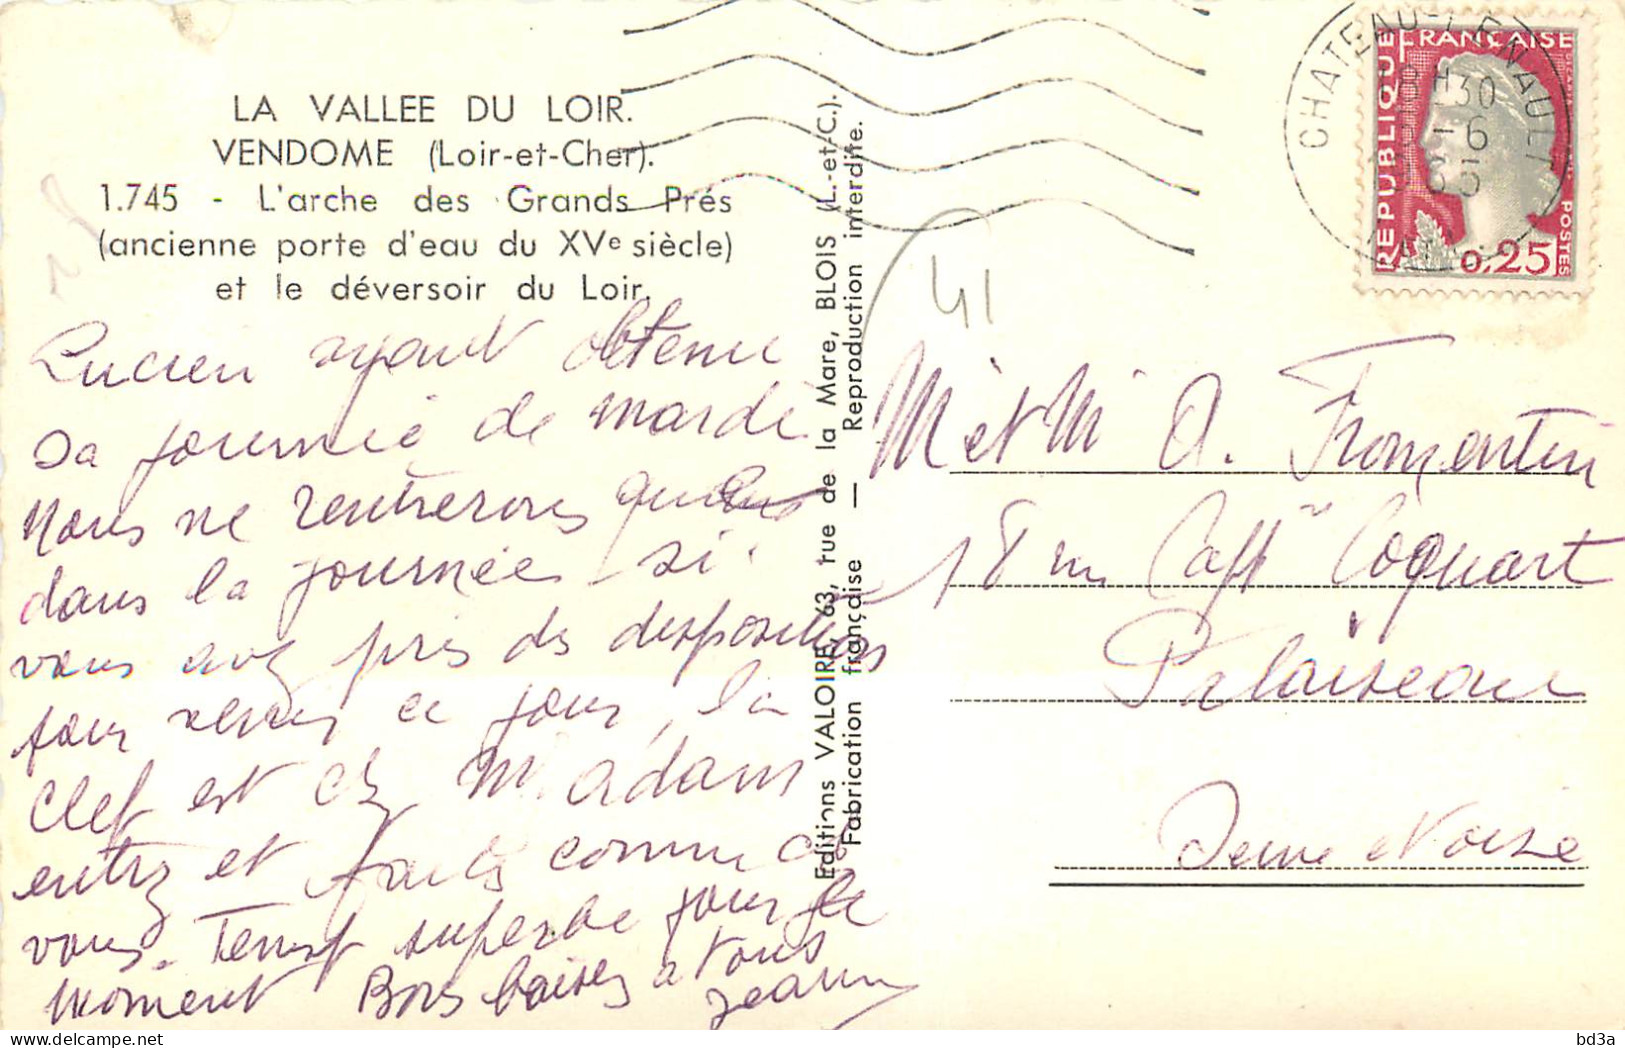 LA VALLEE DU LOIR.
VENDOME (Loir-et-Cher).
1.745 - L'arche des Grands Prés
(ancienne porte d'eau du XVe siècle)
et le déversoir du Loir.
Lucien ayant obtenu
sa journée de mardi
Nous ne rentrerons
dans la journée si
vous avez pris des dispositions
pour venir ce jour, la
clef est chez M. Adam
entrez et faites comme chez
vous. Temps superbe pour le
moment Bons baisers a tous
Jeanne
Editions VALOIRE, 63, rue de la Mare, BLOIS (L.-et-C.).
Fabrication française — Reproduction interdite.
41
CHATEAU-RENAULT
18H30
-6
REPUBLIQUE FRANÇAISE
POSTES
0,25
M et M A. Fromentin
18 rue Capne Coquart
Palaiseau
Seine et Oise
bd3a